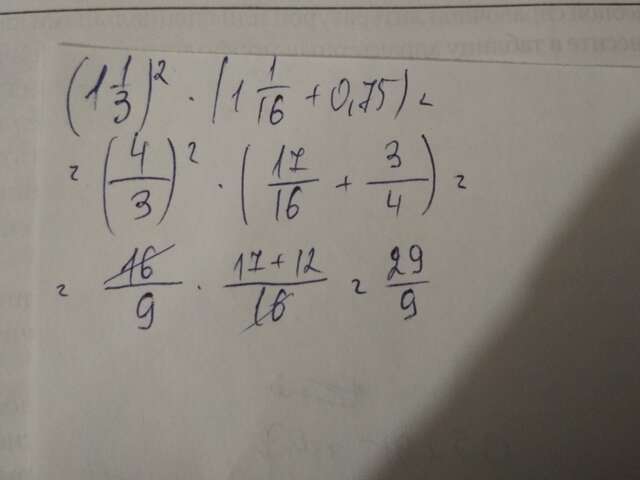 (1 1/3)² · (1 1/16 + 0,75) =
= (4/3)² · (17/16 + 3/4) =
= 16/9 · (17 + 12)/16 = 29/9